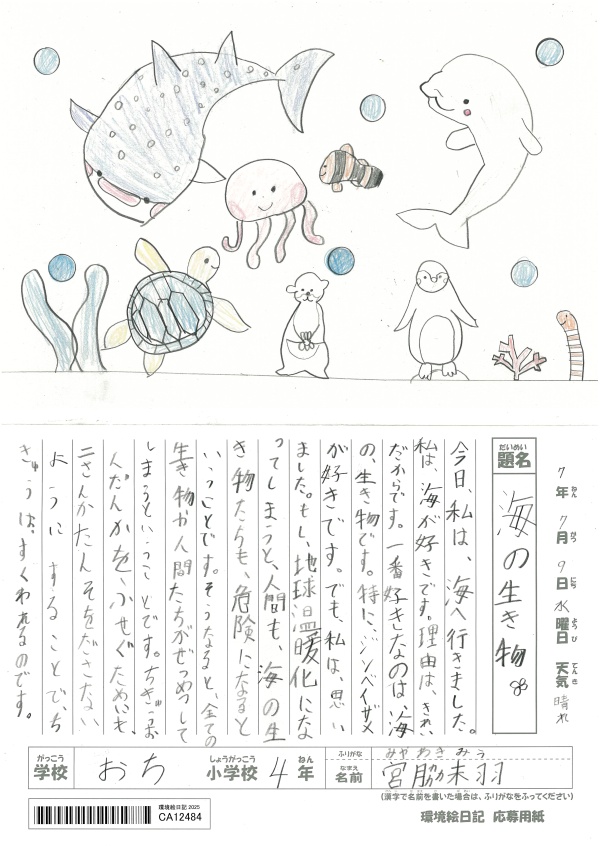 7年7月9日水曜日 天気 晴れ
ねん がつ にち ようび てんき
だいめい
題名 海の生き物
今日、私は、海へ行きました。
私は、海が好きです。理由は、きれい
だからです。一番好きなのは、海
の、生き物です。特に、ジンベイザメ
が好きです。でも、私は、思い
ました。もし、地球温暖化にな
ってしまうと、人間も、海の生
き物たちも、危険になると
いうことです。そうなると、全ての
生き物や人間たちがぜつめつして
しまうということです。ちきゅうお
んだんかを、ふせぐためにも、
二さんかたんそをださない
ようにすることで、ち
きゅうは、すくわれるのです。
がっこう しょうがっこう ねん ふりがな みやわき みう
学校 おち 小学校 4年 なまえ 名前 宮脇未羽
(漢字で名前を書いた場合は、ふりがなをふってください)
環境絵日記 2025
CA12484
環境絵日記 応募用紙